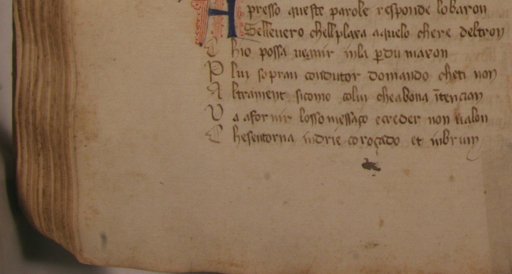 Apresso queste parole responde lobaron
Sellevero chellplaça aquelo chere deltron
C hio possa venir inla pdu maxon
P lui sopran condutor domando cheti non
A ltrament sicome colui cheabona itencion
V a afornir lossomessaço ecreder non valon
C hesentorna indrie coroçado et inbrun